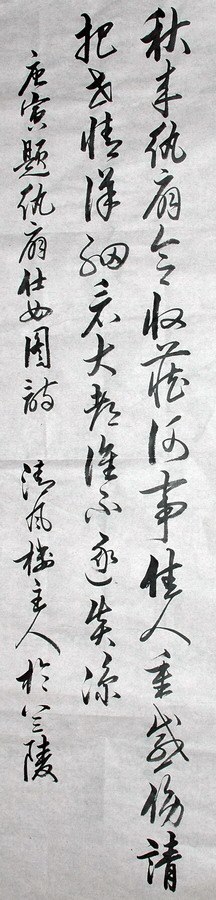 秋来纨扇合收藏何事佳人重感伤請
把世情详細看大都谁不逐炎凉
庚寅题纨扇仕女图诗 清风楼主人於兰陵